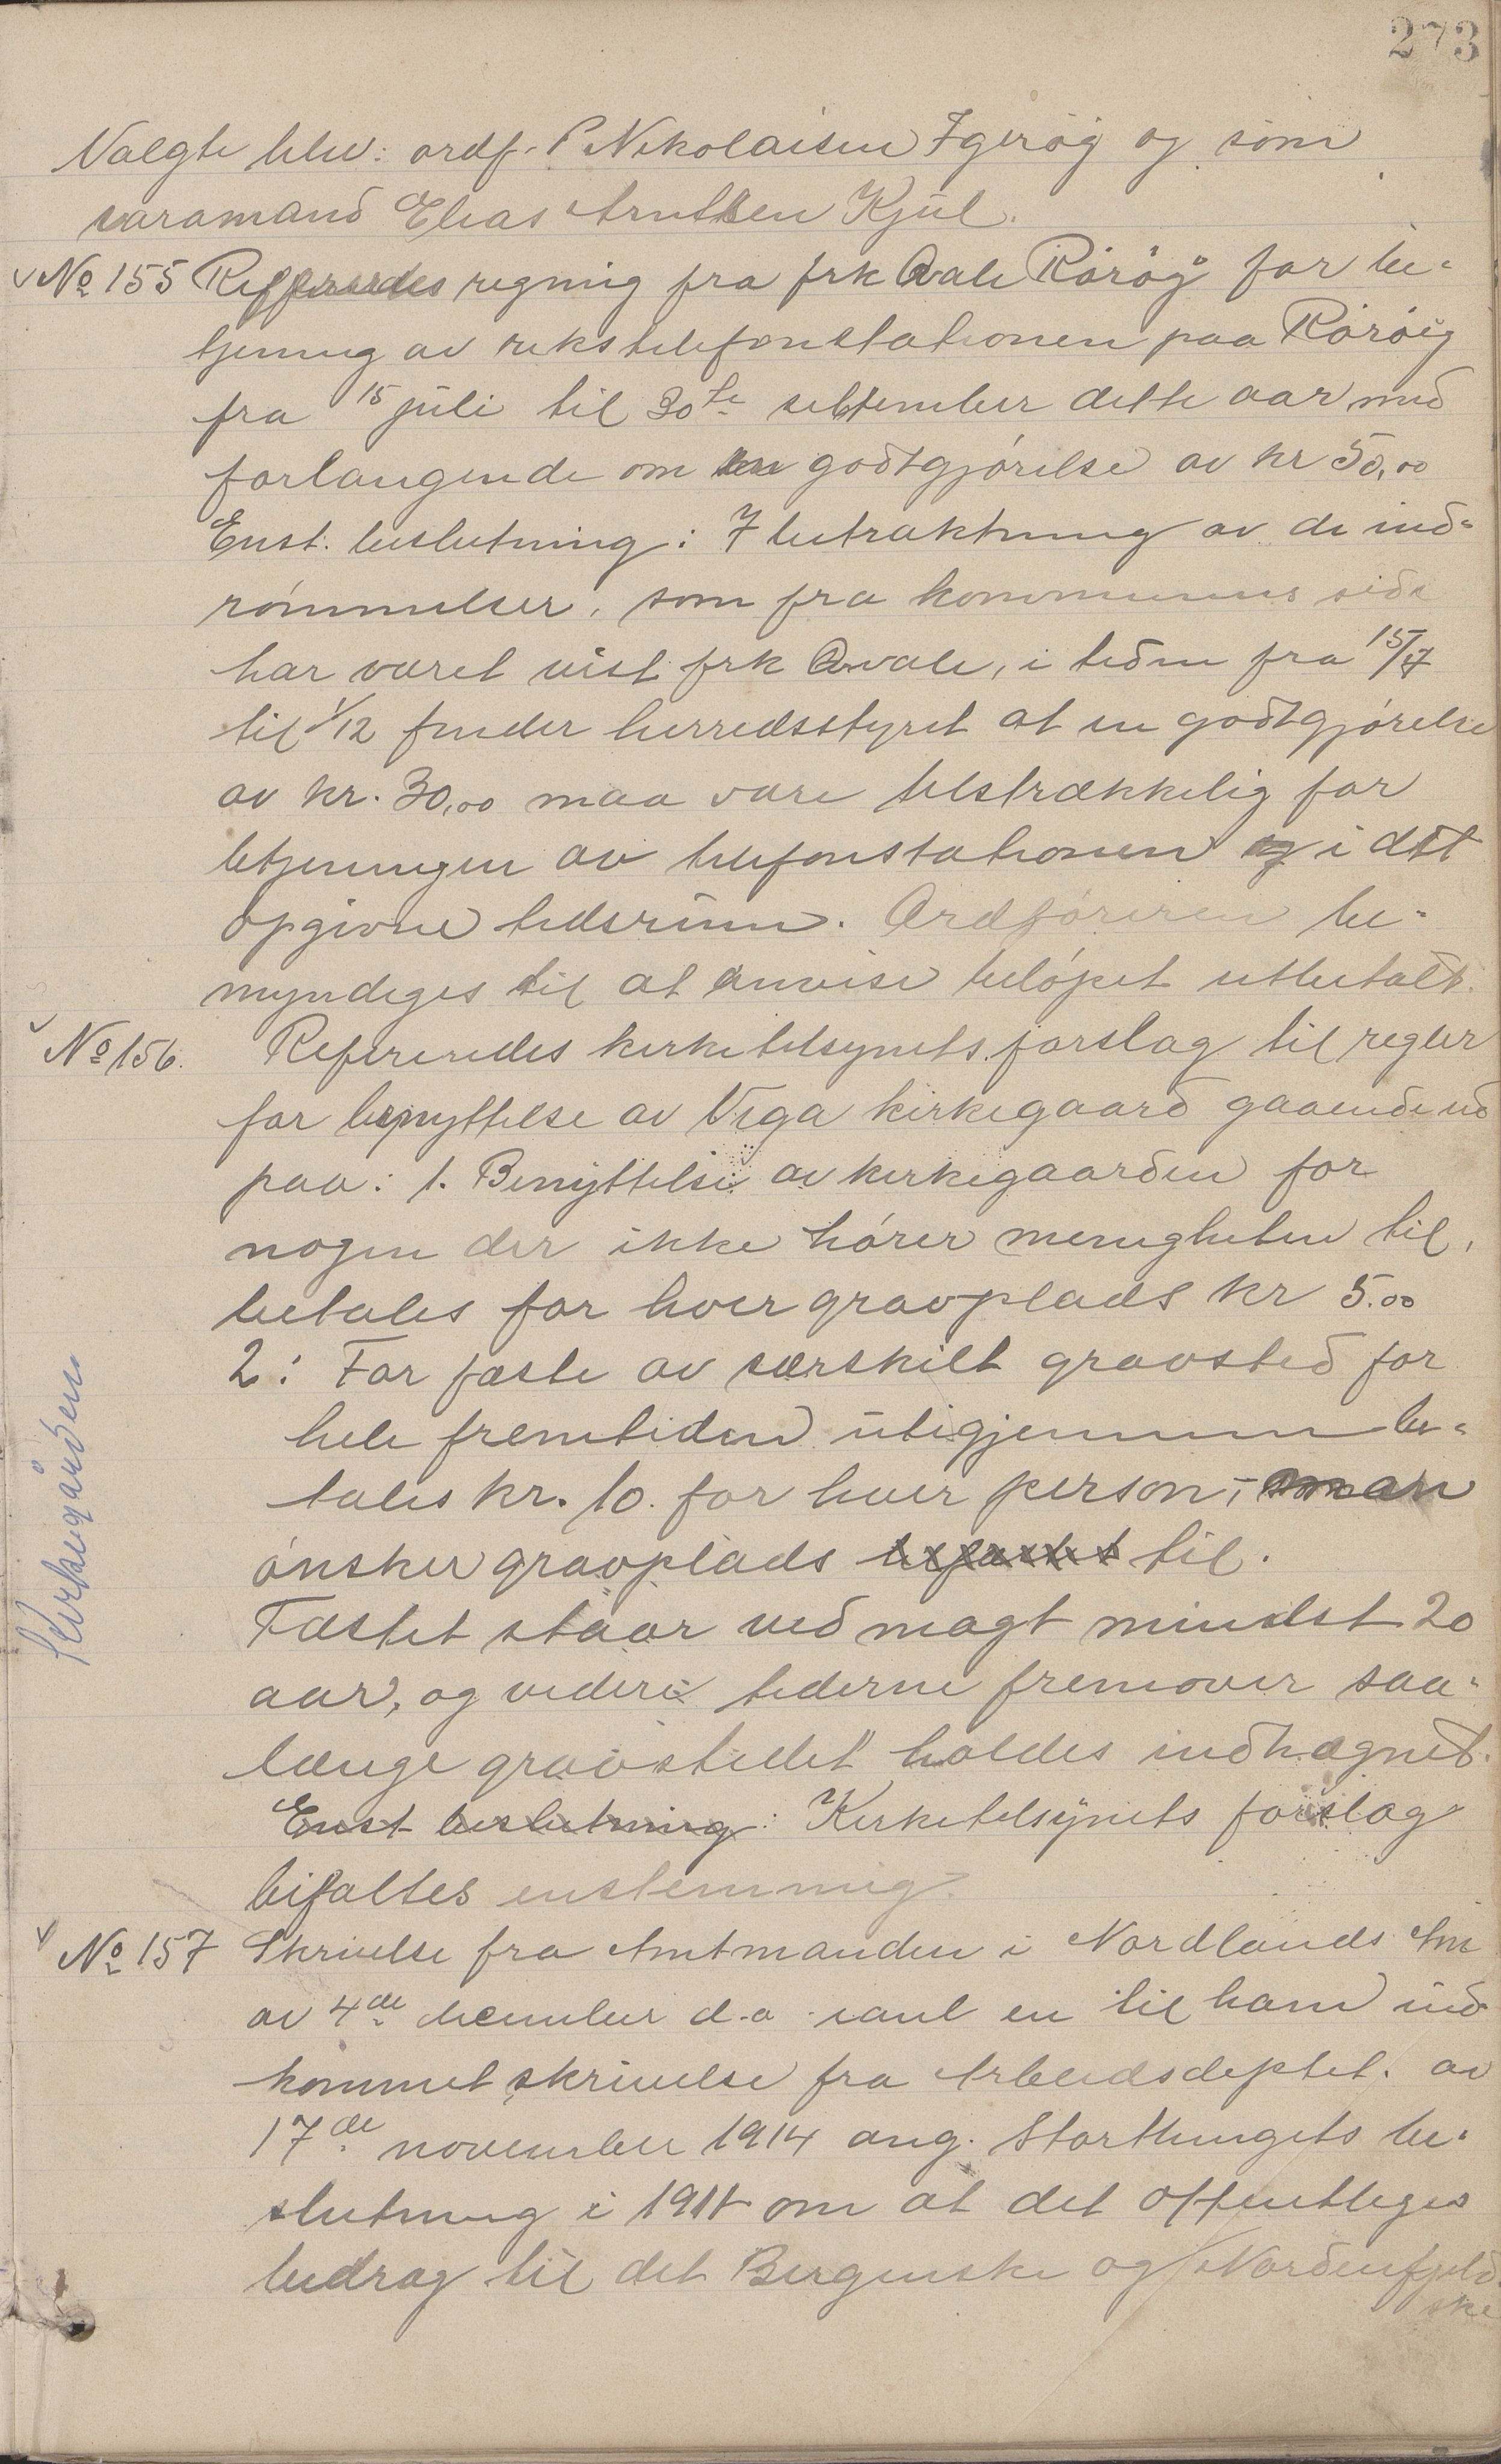 273
Valgte blev: ordf. P Nikolaisen Igerøy og som
varamand Elias Arntsen Kjul.
No 155 Refereredes regning fra frk Qvale Rørøy for be-
tjening av rikstelefonstationen paa Rørøig
fra 15 juli til 30te september dette aar med
forlangende om en godtgjørelse av kr 50,00
Enst. beslutning: I betraktning av de ind-
rømmelser, som fra kommunens side
har været vist frk Qvale, i tiden fra 15/7
til 1/12 finder herredsstyret at en godtgjørelse
av kr. 30,00 maa være tilstrækkelig for
betjeningen av telefonstationen i det
opgivne tidsrum. Ordføreren be-
myndiges til at anvise beløpet utbetalt.
No 156. Refereredes kirketilsynets forslag til regler
for benyttelse av Vega kirkegaard gaaende ud
paa: 1. Benyttelse av kirkegaarden for
nogen der ikke hører menigheten til,
betales for hver gravplads kr 5.00
2: For fæste av særskilt gravsted for
hele fremtiden utigjennem be-
tales kr. 10. for hver person, man
ønsker gravplads til.
Fæstet staar ved magt mindst 20
aar, og videre tiderne fremover saa-
længe gravstedet holdes indhægnet.
Enst beslutning: Kirketilsynets forslag
bifaltes enstemmig.
Kirkegården
No 157 Skrivelse fra Amtmanden i Nordlands Amt
av 4de december d.a. samt en til ham ind-
kommet skrivelse fra Arbeidsdeptet. av
17de november 1914 ang. Storthingets be-
slutning i 1911 om at det offentliges
bidrag til det Bergenske og Nordenfjeld-
ske